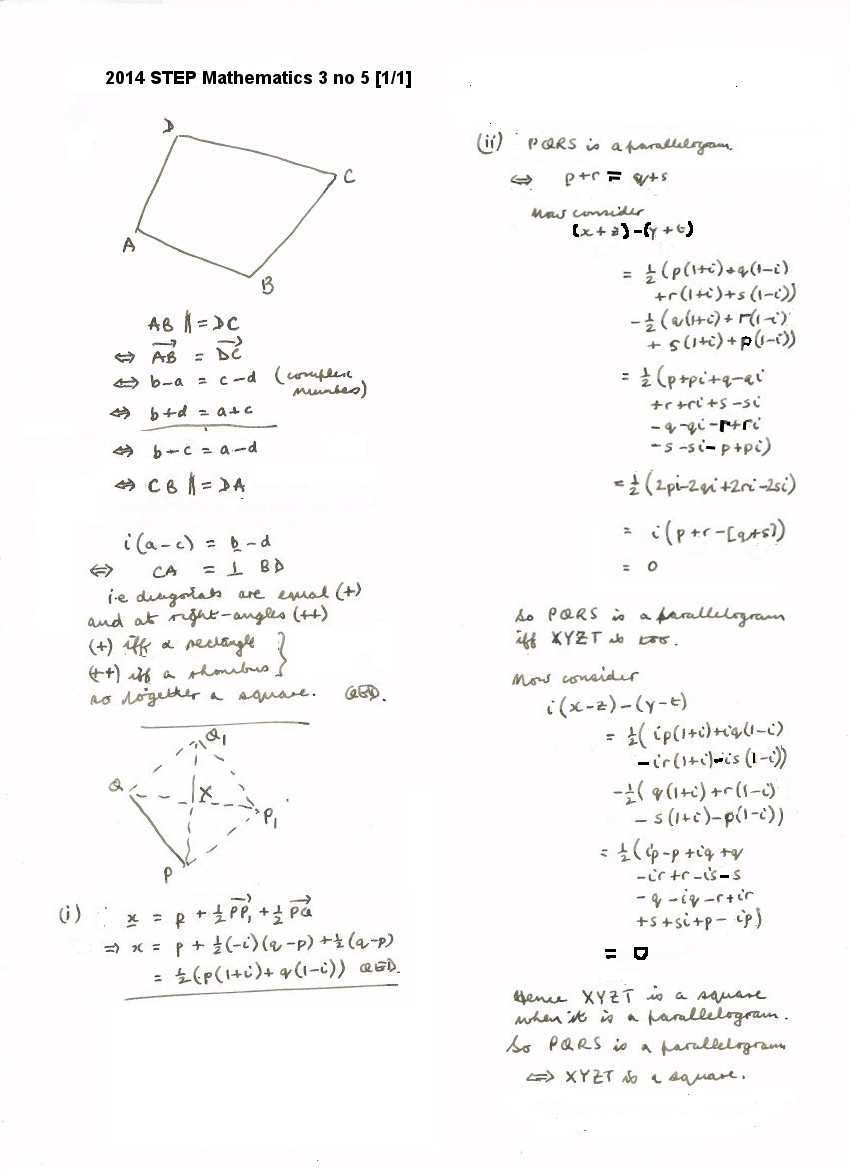 2014 STEP Mathematics 3 no 5 [1/1]
D
C
A
B
AB ∥= DC
⇔ →AB = →DC
⇔ b-a = c-d (complex numbers)
⇔ b+d = a+c
⇔ b-c = a-d
⇔ CB ∥= DA
i(a-c) = b-d
⇔ CA = ⊥ BD
i.e diagonals are equal (+)
and at right-angles (++)
(+) iff a rectangle
(++) iff a rhombus
so together a square. QED.
Q₁
Q
X
P₁
P
(i) x = p + ½→PP₁ + ½→PQ
⇒ x = p + ½(-i)(q-p) + ½(q-p)
= ½(p(1+i)+q(1-i)) QED.
(ii) PQRS is a parallelogram
⇔ p+r = q+s
Now consider
(x+z)-(y+t)
= ½(p(1+i)+q(1-i)
+r(1+i)+s(1-i))
-½(q(1+i)+r(1-i)
+ s(1+i)+p(1-i))
= ½(p+pi+q-qi
+r+ri+s-si
-q-qi-r+ri
-s-si-p+pi)
=½(2pi-2qi+2ri-2si)
= i(p+r-[q+s])
= 0
So PQRS is a parallelogram
iff XYZT is too.
Now consider
i(x-z)-(y-t)
= ½(ip(1+i)+iq(1-i)
-ir(1+i)-is(1-i))
-½(q(1+i)+r(1-i)
-s(1+i)-p(1-i))
= ½(ip-p+iq+q
-ir+r-is-s
-q-iq-r+ir
+s+si+p-ip)
= 0
Hence XYZT is a square
when it is a parallelogram.
So PQRS is a parallelogram
⇔ XYZT is a square.